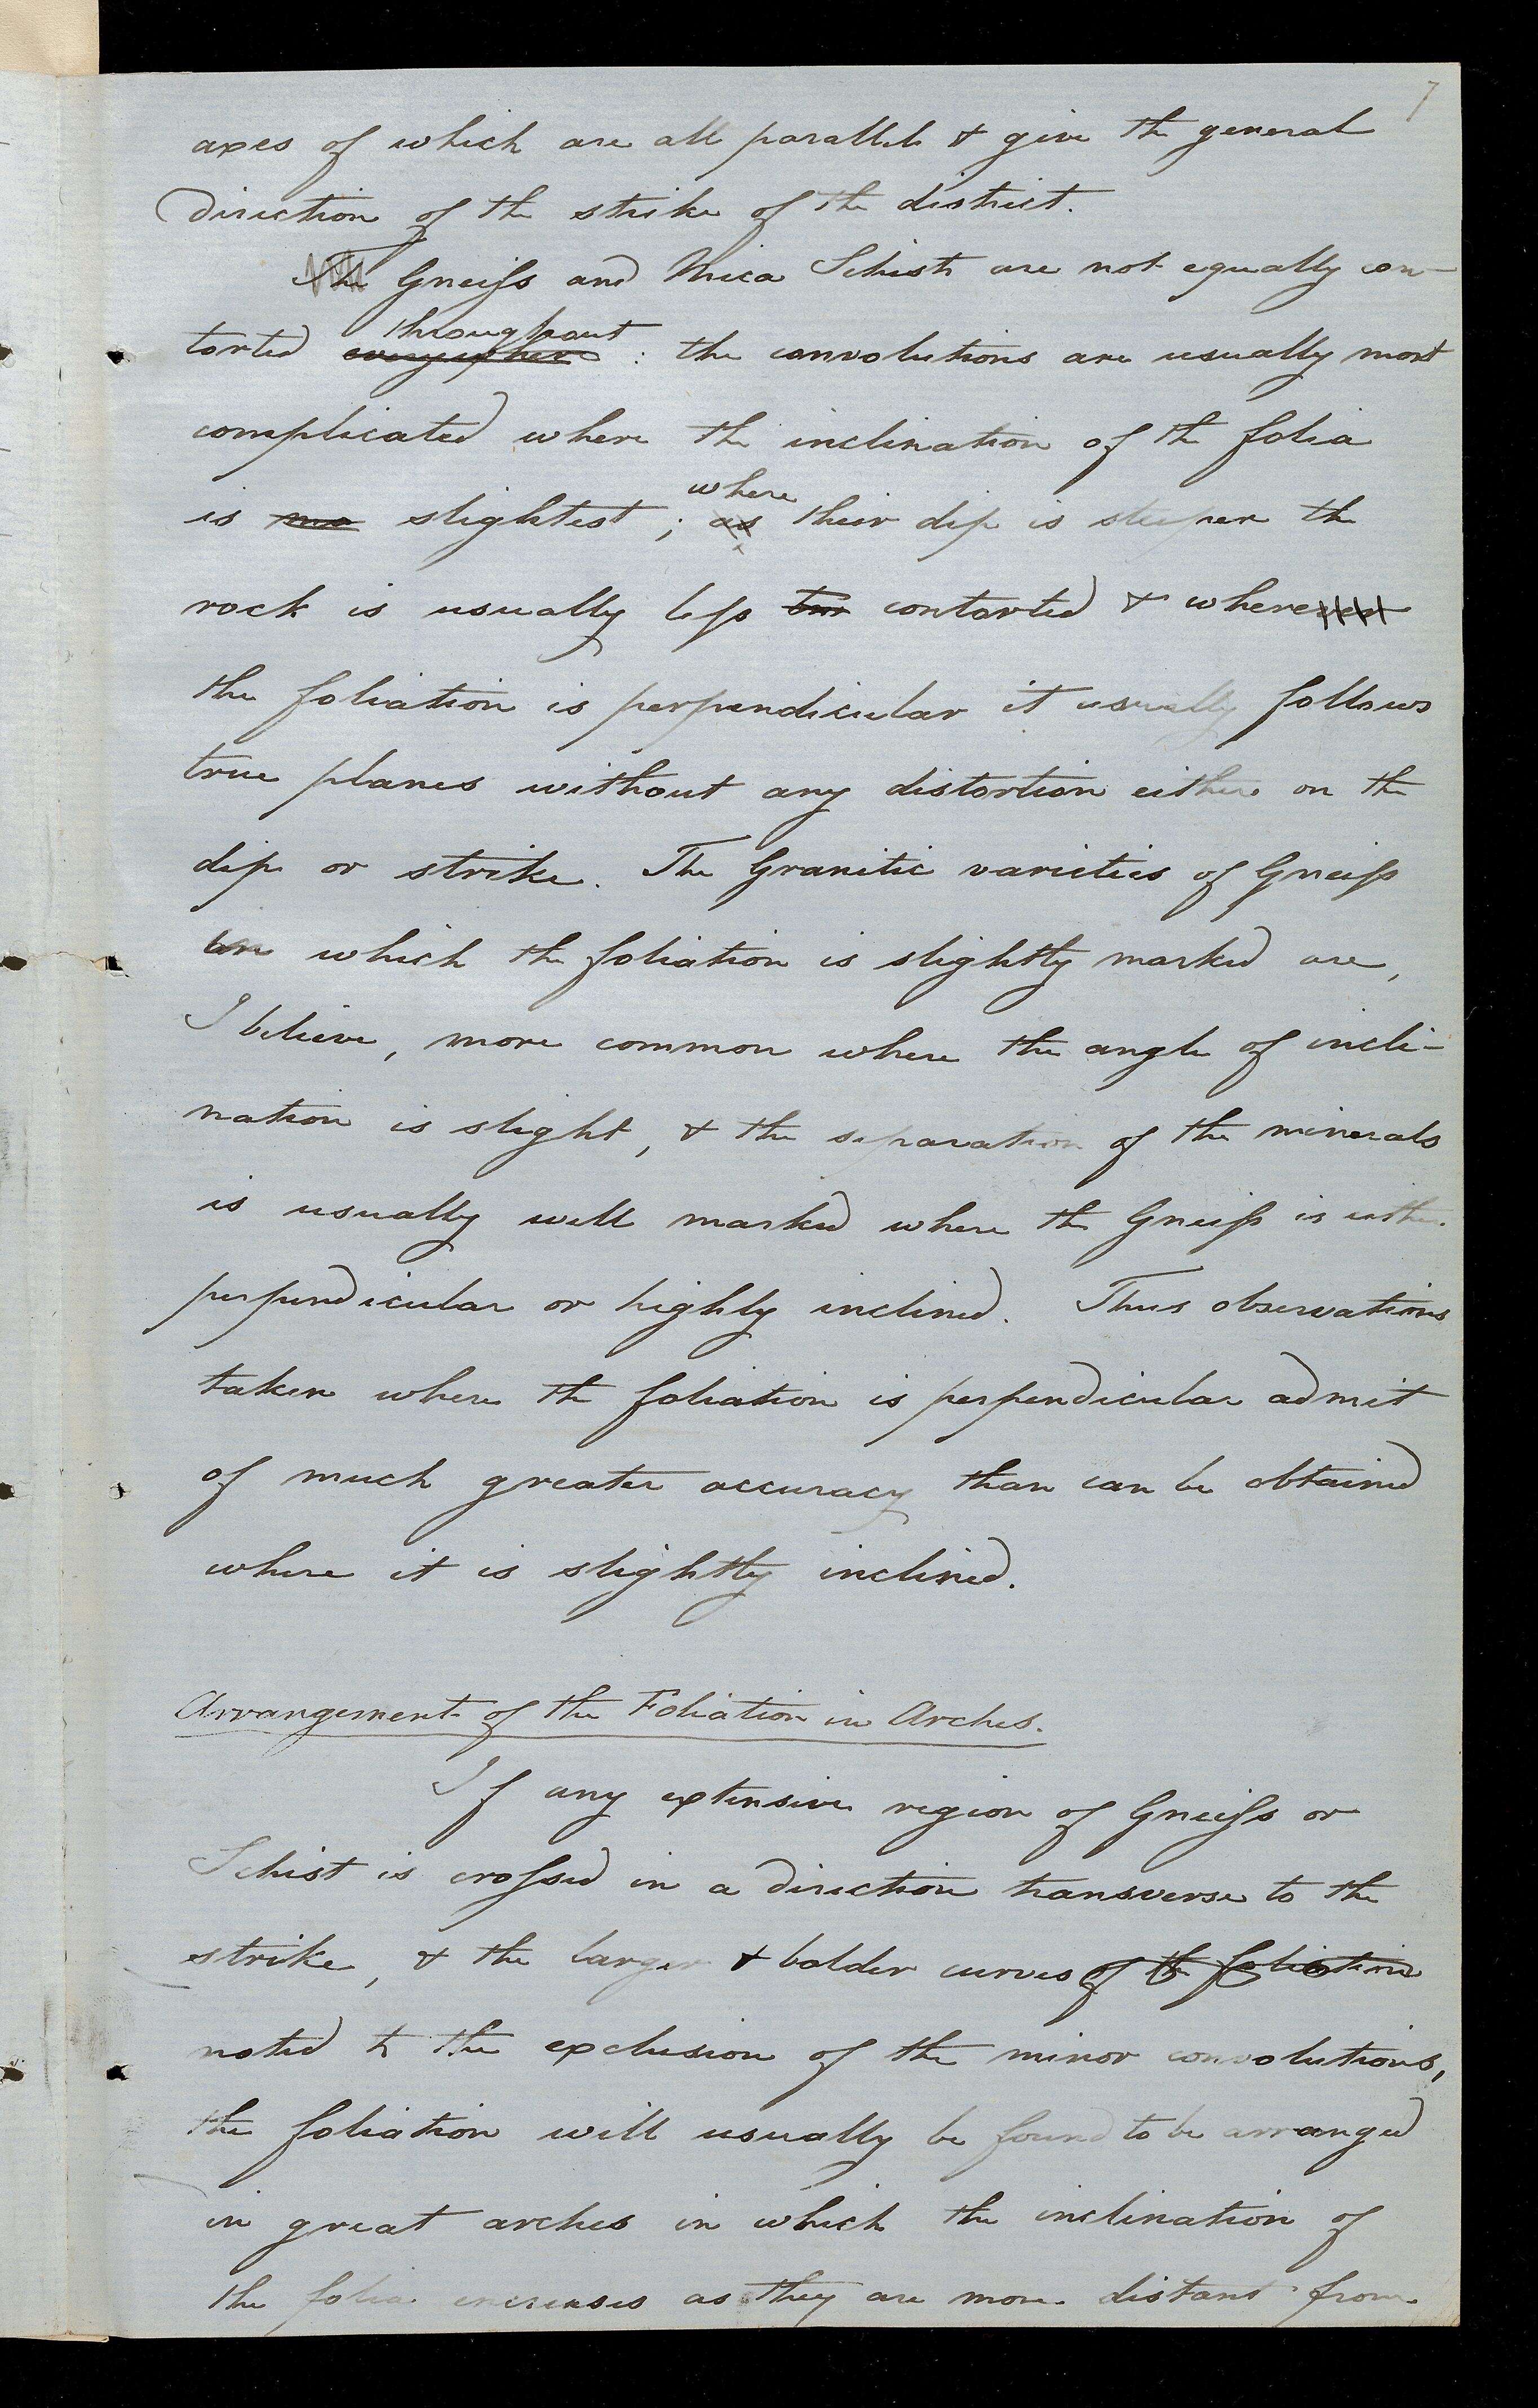 7
axes of which are all parallel & give the general
direction of the strike of the district.
The Gneiss and Mica Schist are not equally con-
throughout
torted everywhere : the convolutions are usually most
complicated where the inclination of the folia
where
is mo slightest ; as their dip is steeper the
rock is usually less contorted & wherever
the foliation is perpendicular it usually follows
true planes without any distortion either on the
dip or strike. The Granitic varieties of Gneiss
in which the foliation is slightly marked are,
I believe, more common where the angle of incli-
nation is slight, & the separation of the minerals
is usually well marked where the Gneiss is either
perpendicular or highly inclined. Thus observations
taken where the foliation is perpendicular admit
of much greater accuracy than can be obtained
where it is slightly inclined.
Arrangement of the Foliation in Arches.
If any extensive region of Gneiss or
Schist is crossed in a direction transverse to the
strike, & the larger & bolder curves of the foliation
noted to the exclusion of the minor convolutions,
the foliation will usually be found to be arranged
in great arches in which the inclination of
the folia increases as they are more distant from